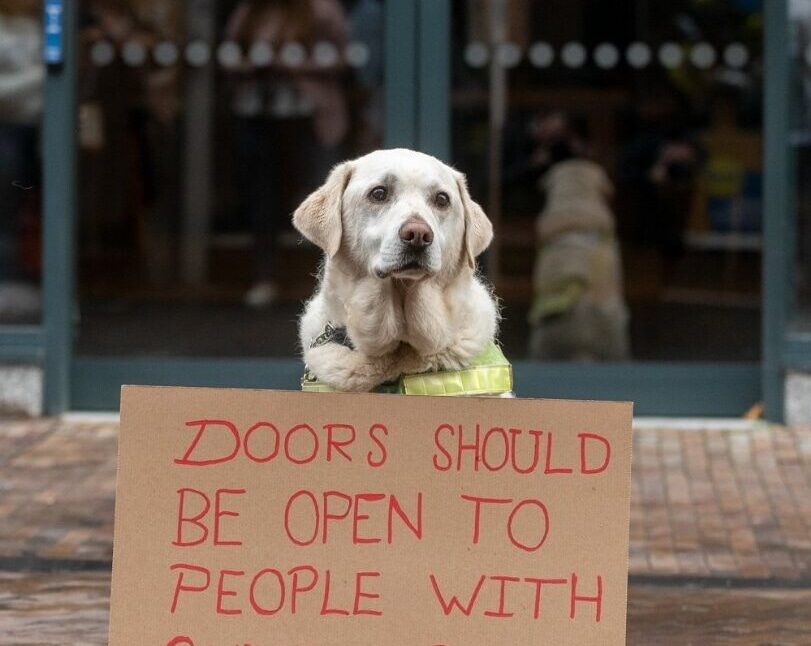 DOORS SHOULD
BE OPEN TO
PEOPLE WITH